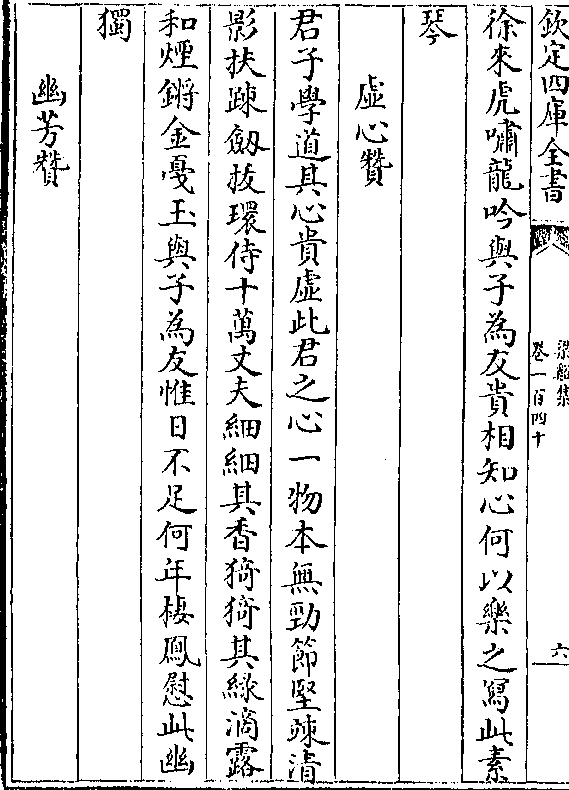 欽定四庫全書
梁谿集
卷一百四十
六
徐來虎嘯龍吟與子為友貴相知心何以樂之寫此素
琴
虛心贊
君子學道其心貴虛此君之心一物本無勁節堅竦清
影扶踈劔拔環侍十萬丈夫細細其香猗猗其綠滴露
和煙鏘金戞玉與子為友惟日不足何年棲鳳慰此幽
獨
幽芳贊